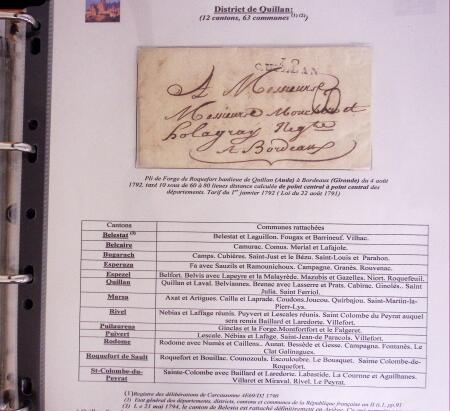 District de Quillan:
(12 cantons, 63 communes
QUILLAN
A Messieurs
Messieurs
Negts
A Bordeaux
Pli de Forge de Roquefort banlieue de Quillan (Aude) à Bordeaux (Gironde) du 4 août
1792, taxé 10 sous de 60 à 80 lieues distance calculée de point central à point central des
départements. Tarif du 1er janvier 1792 ( Loi du 22 août 1791)
Cantons Communes rattachées
Belestat (3) Belestat et Laguillon. Fougax et Barrineuf. Vilhac.
Belcaire Camurac. Comus. Merial et Lafajole.
Bugarach Camps. Cubières. Saint-Just et le Bézu. Saint-Louis et Parahon.
Esperaza Fa avec Sauzils et Ramounichoux. Campagne. Granès. Rouvenac.
Espezel Belfort. Belvis avec Lapeyre et la Malayrède. Mazubis et Gazelles. Niort. Roquefeuil.
Quillan Quillan et Laval. Belviannes. Brenac avec Lasserre et Prats. Cabirac. Ginoles. Saint
Julia. Saint Ferriol.
Marsa Axat et Artigues. Cailla et Caprade. Coudons.Joucou. Quirbajou. Saint-Martin-la-
Pierr-Lys.
Rivel Nebias et Laffage réunis. Puyvert et Lescales réunis. Saint Colombe du Peyrat auquel
sera remis Baillard et Laredorte. Villefort.
Puilaurens Ginclas et la Forge.Montfortfort et le Falgeret.
Puivert Lescale. Nebias et Lafage. Saint-Jean-de Paracols. Villefort.
Rodome Rodome avec Numès et Caillens.. Aunat. Bessède et Gesse. Campagna. Fontanès. Le
Clat Galinagues.
Roquefort de Sault Roquefort et Bouillac. Counozouls. Escouloubre. Le Bousquet. Sainte Colombe-de-
Roquefort.
St-Colombe-du-
Peyrat Sainte-Colombe avec Baillard et Laredorte. Labastide. La Cournne et Aguilhanes.
Villaret et Miraval. Rivel. Le Peyrat.
(1)Registre des délibérations de Carcassonne 4E69/D2 1790
(2) Etat général des départements, districts, cantons et communes de la République française an II t.1, pp.91
(3) Le 21 mai 1794, le canton de Belesta est rattaché définitivement